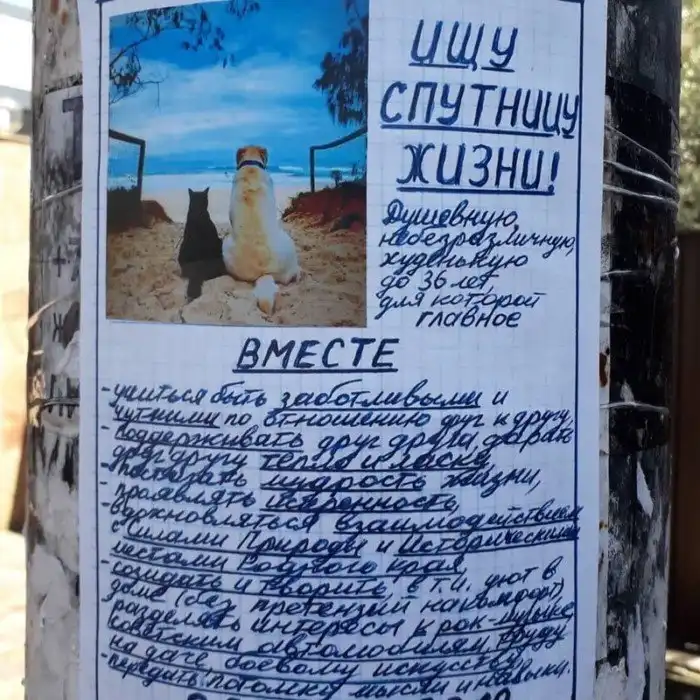 ИЩУ
СПУТНИЦУ
ЖИЗНИ!
Душевную,
небезразличную,
худенькую
до 36 лет,
для которой
главное
ВМЕСТЕ
- учиться быть заботливыми и
чуткими по отношению друг к другу,
- поддерживать друг друга, даря
друг другу тепло и ласку,
- постигать мудрость жизни,
- проявлять искренность,
- вдохновляться взаимодействием
с Силами Природы и Историческими
местами Родного края,
- созидать и творить, в т.ч. уют в
доме (без претензий на комфорт),
разделять интересы к рок-музыке,
советским автомобилям, труду
на даче, боевому искусству,
- передать потомкам мысли и навыки.